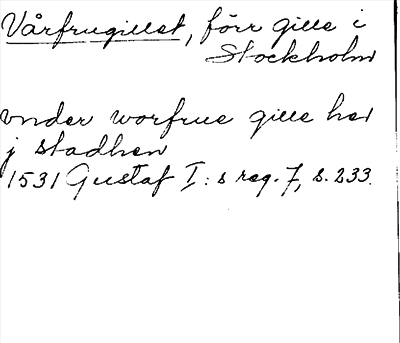 Vårfrugillet, förr gille i
Stockholm
vnder worfrue gille her
j stadhen
1531 Gustaf I: s reg. 7, s. 233.